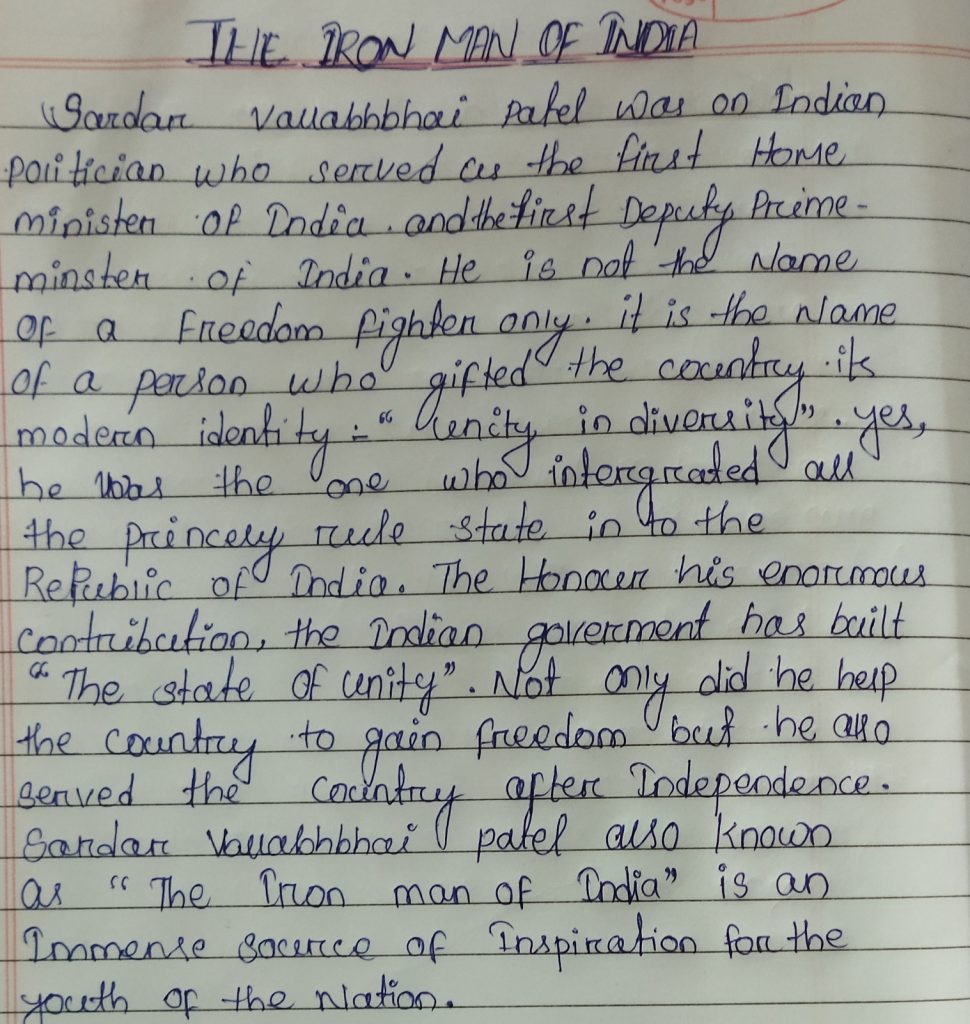 THE IRON MAN OF INDIA
Sardar Vallabhbhai Patel was on Indian
politician who served as the first Home
minister of India. and the first Deputy Prime-
minster of India. He is not the Name
of a freedom fighter only. it is the Name
of a person who gifted the country its
modern identity :- "Unity in diversity". yes,
he was the one who intergrated all
the princely rule state in to the
Republic of India. The Honour his enormous
contribution, the Indian goverment has built
"The state of unity". Not only did he help
the country to gain freedom but he also
served the country after Independence.
Sardar Vallabhbhai patel also known
as "The Iron man of India" is an
Immense source of Inspiration for the
youth of the Nation.